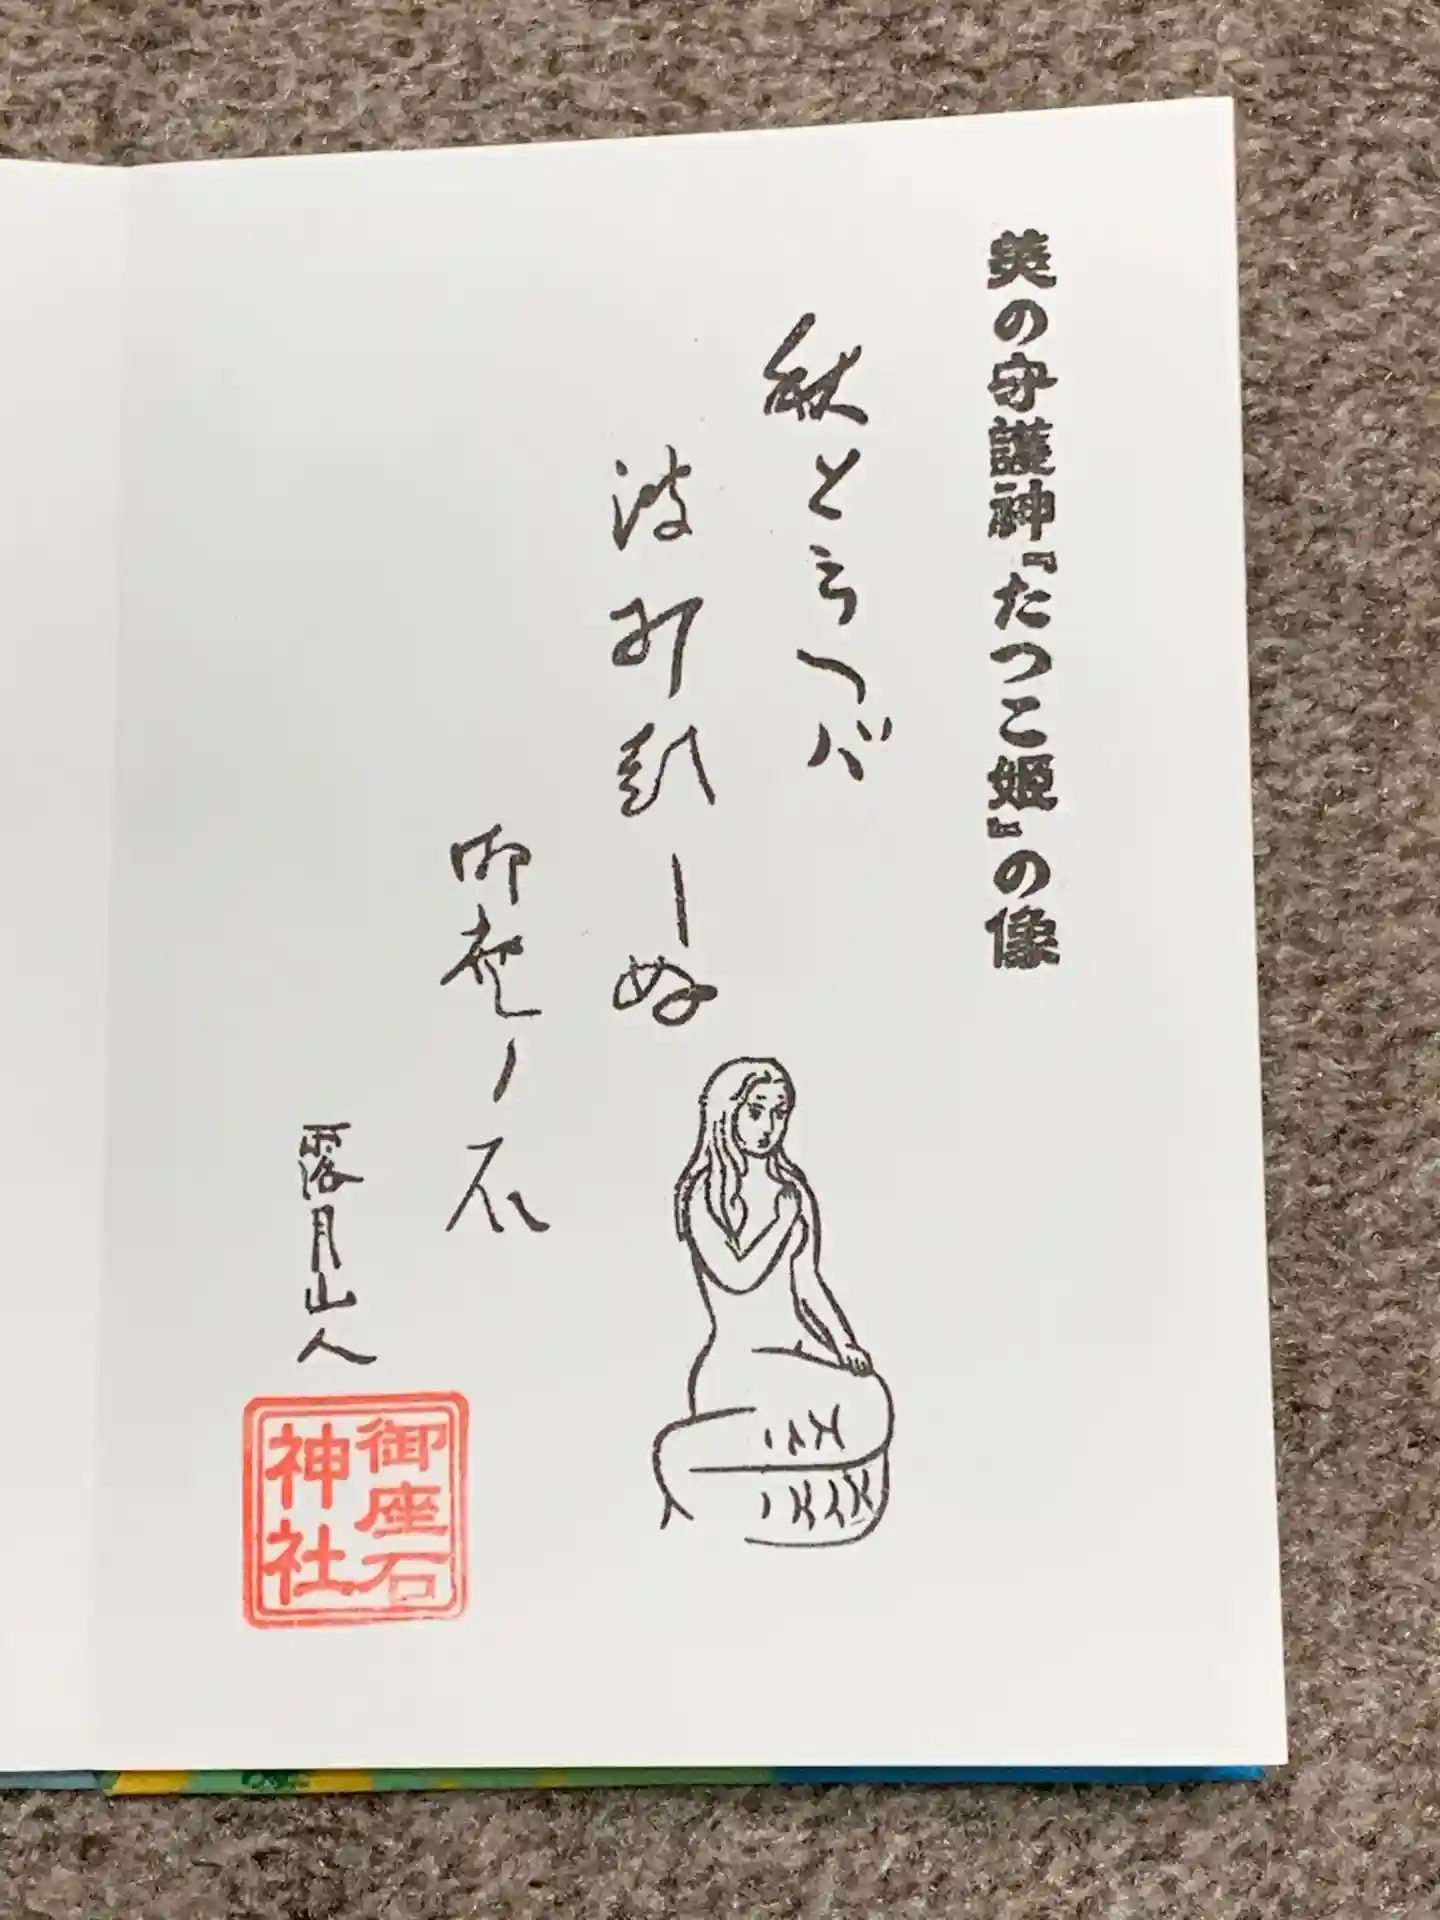 美の守護神『たつこ姫』の像
秋とへバ
波しぬ
御座ノ石
露月山人
御座石
神社